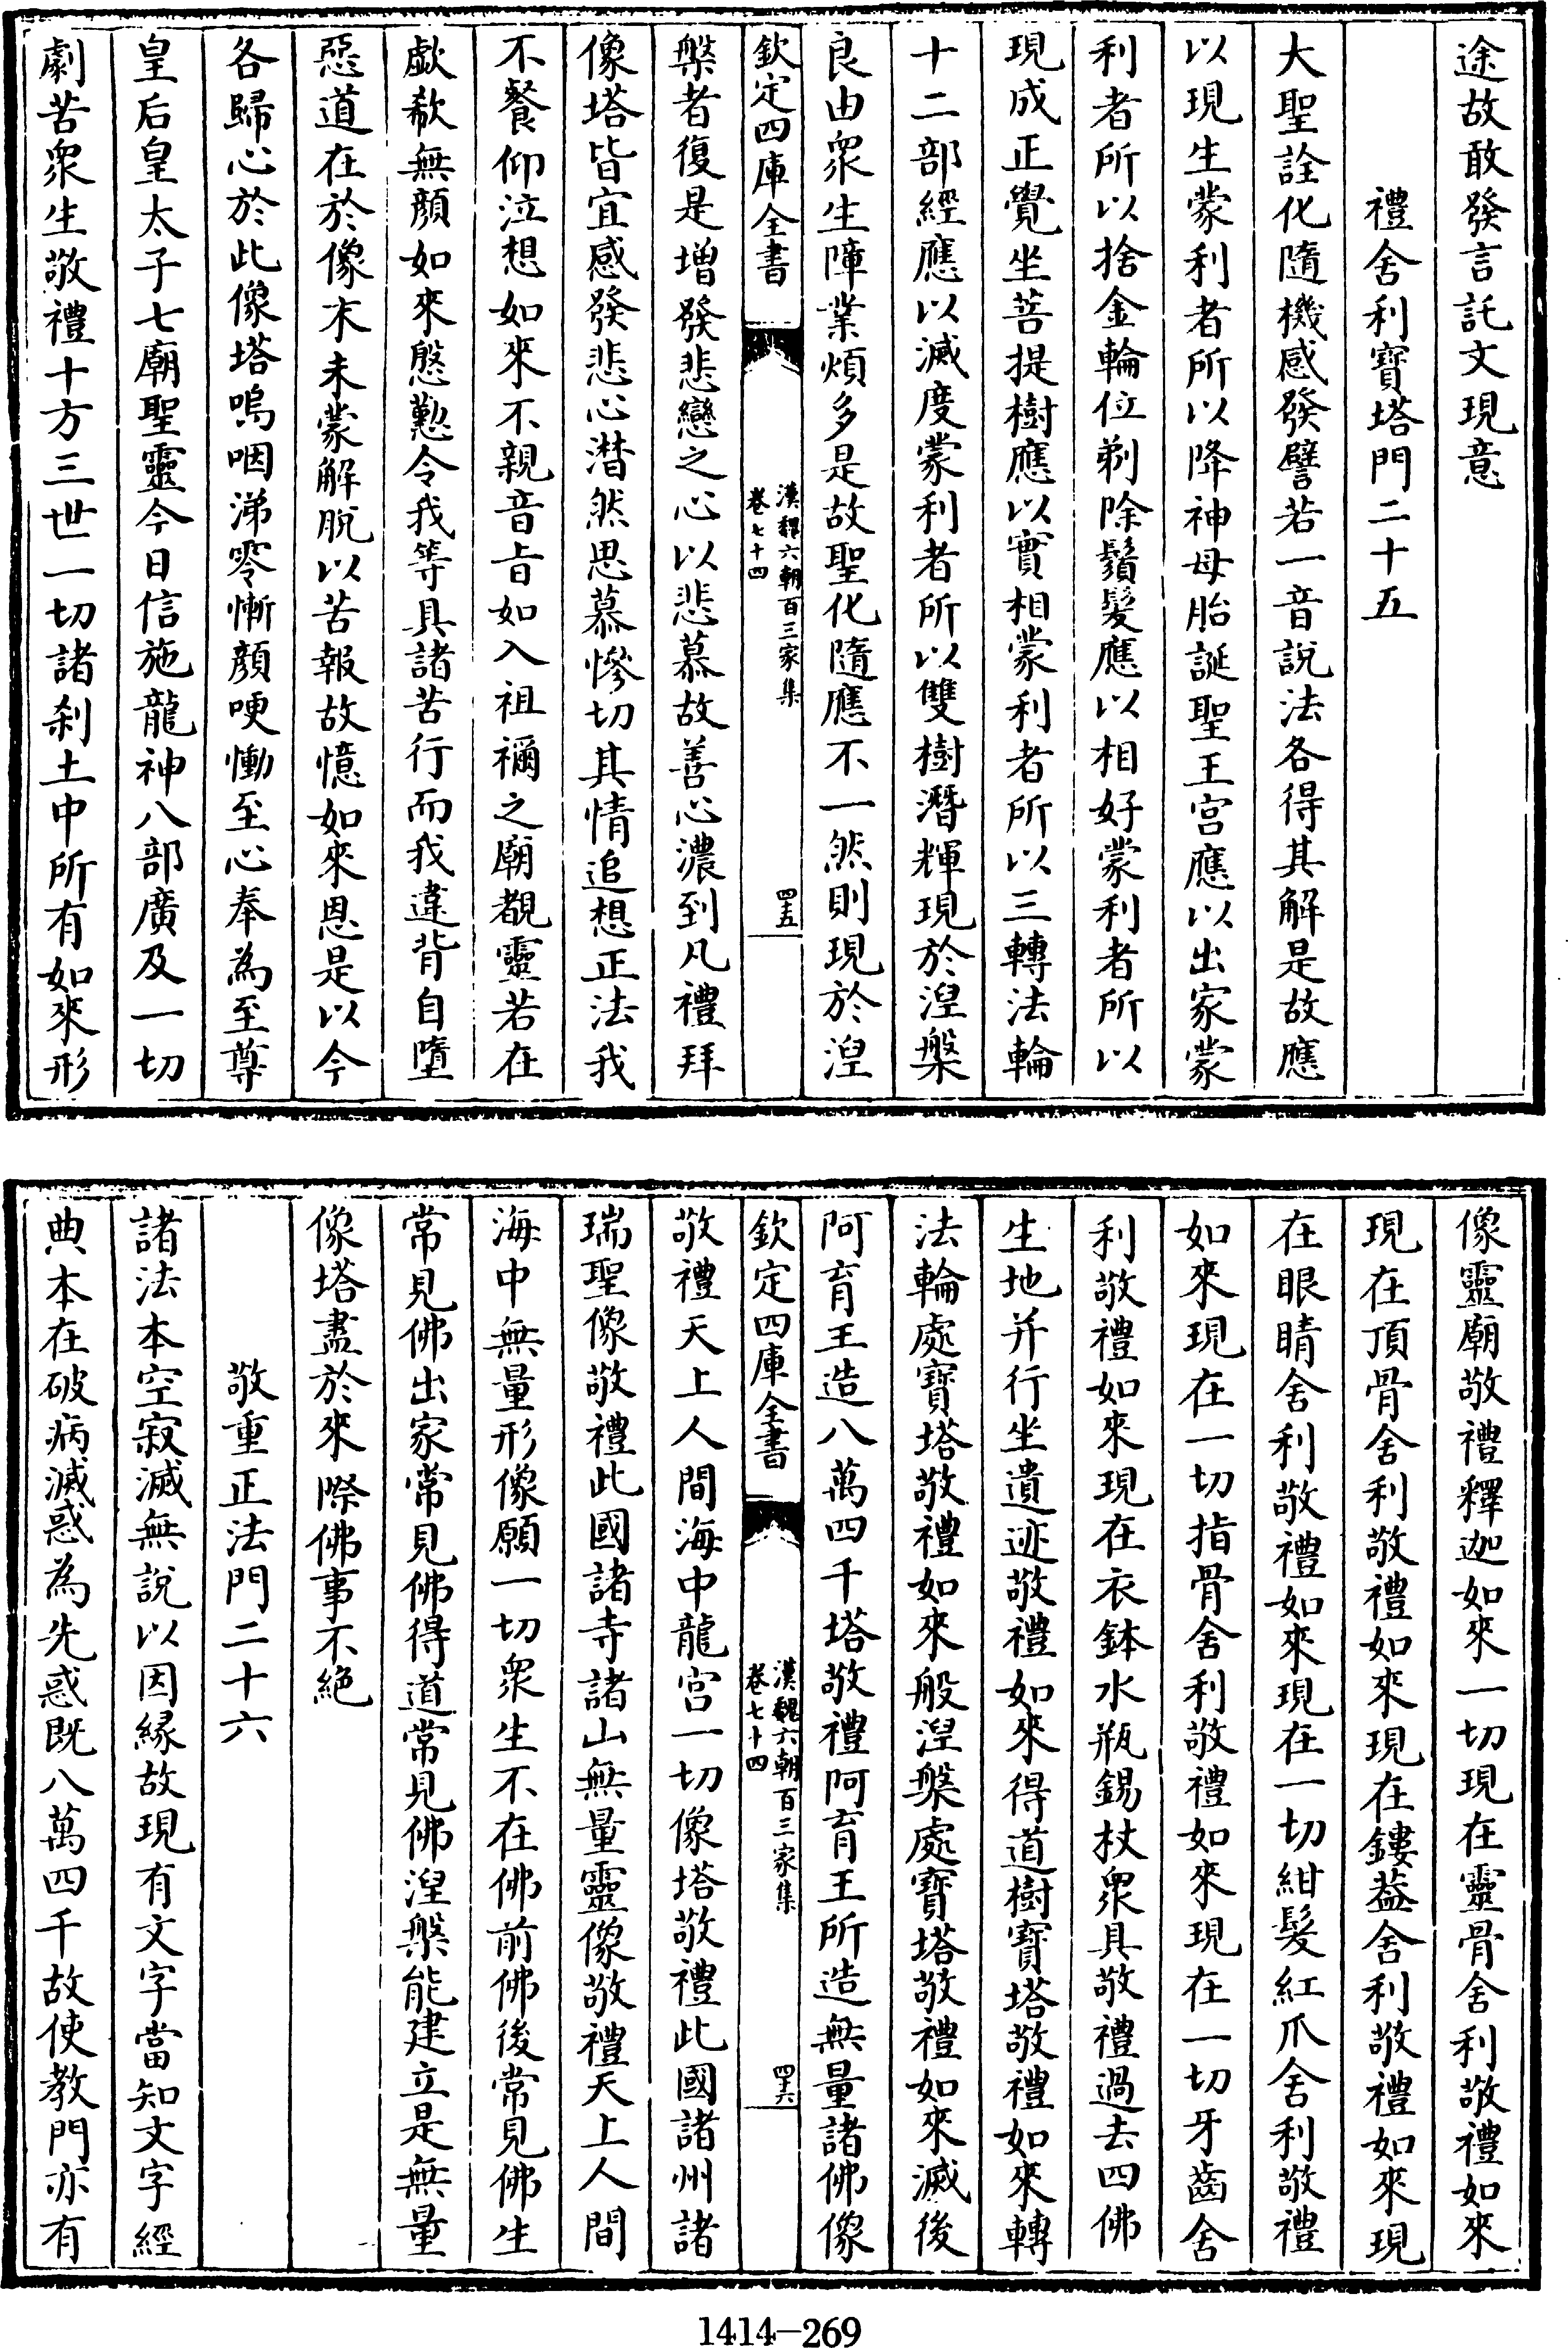 途故敢發言託文現意
禮舍利寶塔門二十五
大聖詮化隨機感發譬若一音說法各得其解是故應
以現生蒙利者所以降神母胎誕聖王宮應以出家蒙
利者所以捨金輪位剃除鬚髮應以相好蒙利者所以
現成正覺坐菩提樹應以實相蒙利者所以三轉法輪
十二部經應以滅度蒙利者所以雙樹潛輝現於涅槃
良由衆生障業煩多是故聖化隨應不一然則現於涅
欽定四庫全書
漢魏六朝百三家集
卷七十四
四五
槃者復是增發悲戀之心以悲慕故善心濃到凡禮拜
像塔皆宜感發悲心潸然思慕慘切其情追想正法我
不餐仰泣想如來不親音旨如入祖禰之廟覩靈若在
歔欷無顏如來慇懃令我等具諸苦行而我違背自墮
惡道在於像末未蒙解脫以苦報故憶如來恩是以今
各歸心於此像塔嗚咽涕零慚顏哽慟至心奉為至尊
皇后皇太子七廟聖靈今日信施龍神八部廣及一切
劇苦衆生敬禮十方三世一切諸刹土中所有如來形
像靈廟敬禮釋迦如來一切現在靈骨舍利敬禮如來
現在頂骨舍利敬禮如來現在鏤葢舍利敬禮如來現
在眼睛舍利敬禮如來現在一切紺髮紅爪舍利敬禮
如來現在一切指骨舍利敬禮如來現在一切牙齒舍
利敬禮如來現在衣鉢水瓶錫杖衆具敬禮過去四佛
生地并行坐遺迹敬禮如來得道樹寶塔敬禮如來轉
法輪處寶塔敬禮如來般涅槃處寶塔敬禮如來滅後
阿育王造八萬四千塔敬禮阿育王所造無量諸佛像
欽定四庫全書
漢魏六朝百三家集
卷七十四
四六
敬禮天上人間海中龍宮一切像塔敬禮此國諸州諸
瑞聖像敬禮此國諸寺諸山無量靈像敬禮天上人間
海中無量形像願一切衆生不在佛前佛後常見佛生
常見佛出家常見佛得道常見佛涅槃能建立是無量
像塔盡於來際佛事不絕
敬重正法門二十六
諸法本空寂滅無說以因緣故現有文字當知文字經
典本在破病滅惑為先惑既八萬四千故使教門亦有
1414—269